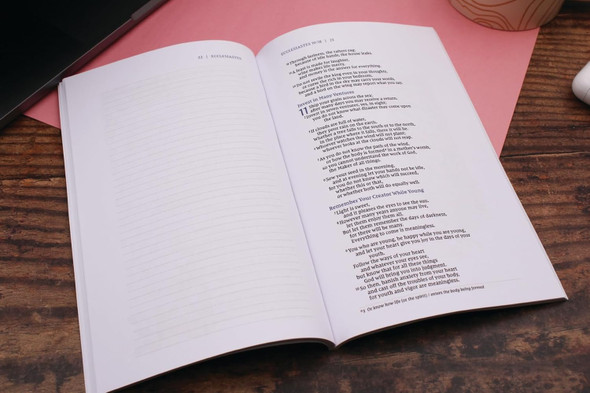 22 | ECCLESIASTES
ECCLESIASTES 10:18 | 23
18 Through laziness, the rafters sag;
because of idle hands, the house leaks.
19 A feast is made for laughter,
wine makes life merry,
and money is the answer for everything.
20 Do not revile the king even in your thoughts,
or curse the rich in your bedroom,
because a bird in the sky may carry your words,
and a bird on the wing may report what you say.
Invest in Many Ventures
11 Ship your grain across the sea;
after many days you may receive a return.
2 Invest in seven ventures, yes, in eight;
you do not know what disaster may come upon
the land.
3 If clouds are full of water,
they pour rain on the earth.
Whether a tree falls to the south or to the north,
in the place where it falls, there it will lie.
4 Whoever watches the wind will not plant;
whoever looks at the clouds will not reap.
5 As you do not know the path of the wind,
or how the body is formed in a mother's womb,
so you cannot understand the work of God,
the Maker of all things.
6 Sow your seed in the morning,
and at evening let your hands not be idle,
for you do not know which will succeed,
whether this or that,
or whether both will do equally well.
Remember Your Creator While Young
7 Light is sweet,
and it pleases the eyes to see the sun.
8 However many years anyone may live,
let them enjoy them all.
But let them remember the days of darkness,
for there will be many.
Everything to come is meaningless.
9 You who are young, be happy while you are young,
and let your heart give you joy in the days of your
youth.
Follow the ways of your heart
and whatever your eyes see,
but know that for all these things
God will bring you into judgment.
10 So then, banish anxiety from your heart
and cast off the troubles of your body,
for youth and vigor are meaningless.
Or know how life (or the spirit) / enters the body being formed